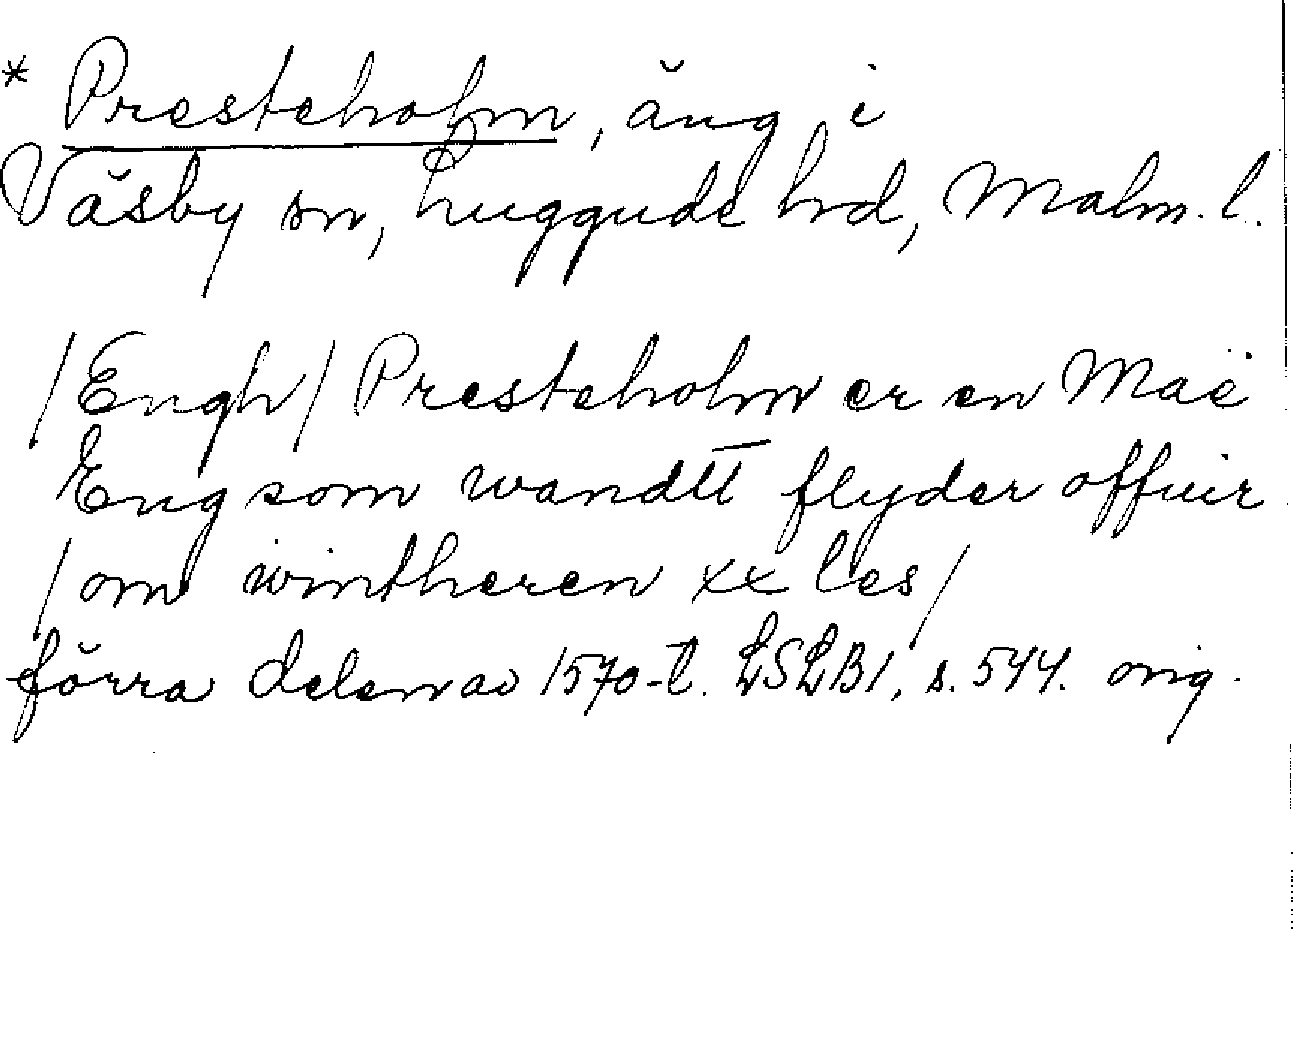 * Presteholm, äng i
Väsby sn, Luggude hrd, Malm. l.
/Engh/ Presteholm er en Maë
Eng som wandtt flyder offuir
/om wintheren xx les/
förra delen av 1570-t. LSLB1, s. 544. orig.